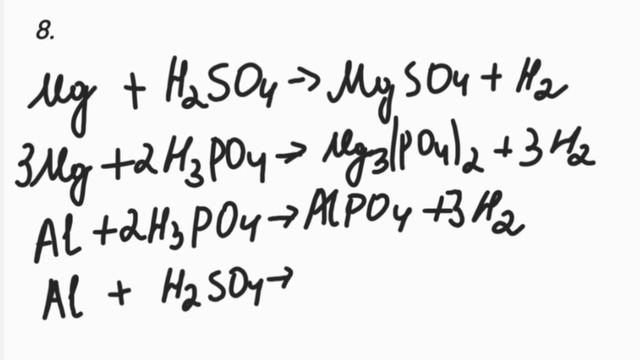 8.
Mg + H₂SO₄ → MgSO₄ + H₂
3Mg + 2H₃PO₄ → Mg₃(PO₄)₂ + 3H₂
Al + 2H₃PO₄ → AlPO₄ + 3H₂
Al + H₂SO₄ →